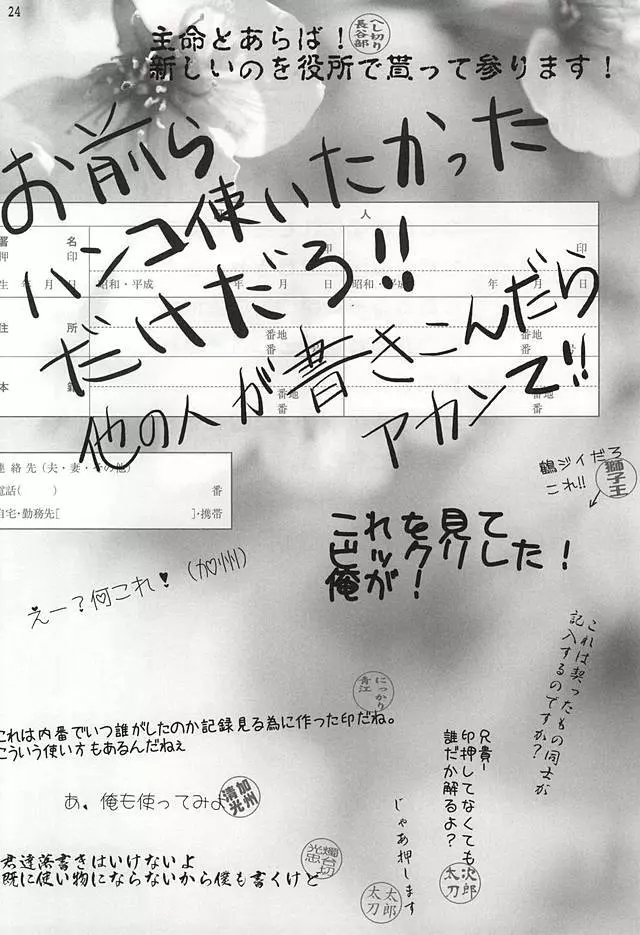 24
主命とあらば！
へし切り
長谷部
新しいのを役所で貰って参ります！
お前ら
ハンコ使いたかった
だけだろ!!
他の人が書きこんだら
アカンて!!
人
署名
押印
印
印
生年月日
昭和・平成 年 月 日
昭和・平成 年 月 日
住所
番地
番
番地
番
本籍
番地
番
番地
番
連絡先（夫・妻・その他）
電話（ ） 番
自宅・勤務先[ ]・携帯
鶴ジイだろ
これ!!
獅子王
これを見て
ビックリした！
俺が！
えー？何これ♥（加州）
これは契ったもの同士が
記入するのですか？
にっかり
青江
これは内番でいつ誰がしたのか記録見る為に作った印だね。
こういう使い方もあるんだねぇ
兄貴ー
印押してなくても
誰だか解るよ？
次郎
太刀
あ、俺も使ってみよ
加州
清光
じゃあ押します
太郎
太刀
燭台切
光忠
君達落書きはいけないよ
既に使い物にならないから僕も書くけど